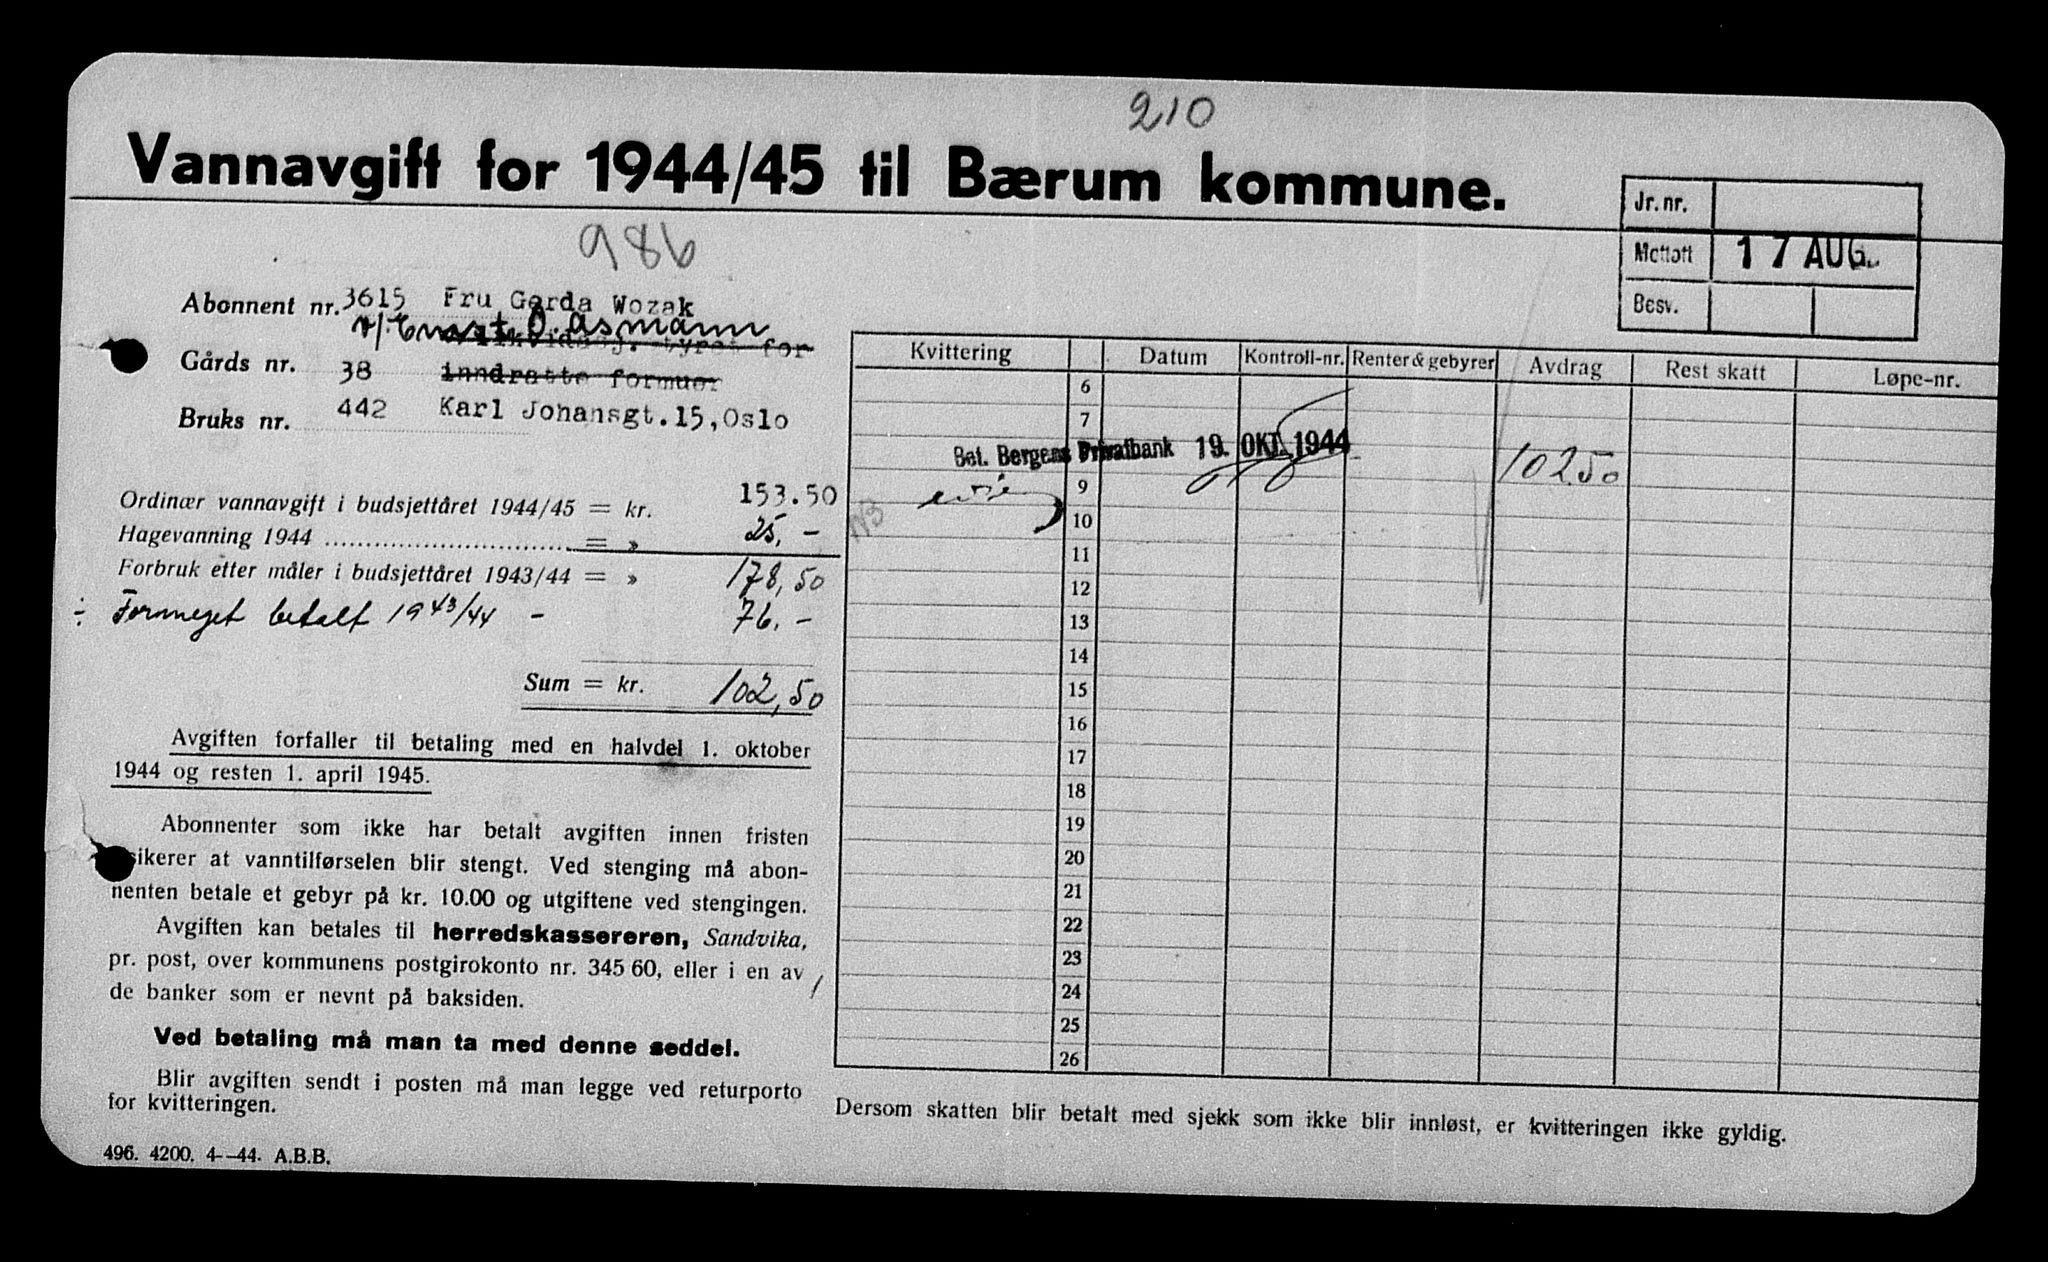 210
Vannavgift for 1944/45 til Bærum kommune.
986
Jr. nr.
Mottatt 17 AUG.
Besv.
Abonnent nr. 3615 Fru Gerda Wozak
v/ Ernst O. Asmann
for
Gårds nr. 38 inndratte formuer
Bruks nr. 442 Karl Johansgt. 15, Oslo
Ordinær vannavgift i budsjettåret 1944/45 = kr. 153.50
Hagevanning 1944 = » 25, -
Forbruk etter måler i budsjettåret 1943/44 = » 178,50
÷ Formeget betalt 1943/44 - 76. -
Sum = kr. 102,50
Avgiften forfaller til betaling med en halvdel 1. oktober
1944 og resten 1. april 1945.
Abonnenter som ikke har betalt avgiften innen fristen
sikerer at vanntilførselen blir stengt. Ved stenging må abon-
nenten betale et gebyr på kr. 10.00 og utgiftene ved stengingen.
Avgiften kan betales til herredskassereren, Sandvika,
pr. post, over kommunens postgirokonto nr. 345 60, eller i en av
de banker som er nevnt på baksiden.
Ved betaling må man ta med denne seddel.
Blir avgiften sendt i posten må man legge ved returporto
for kvitteringen.
496. 4200. 4--44. A.B.B.
Kvittering Datum Kontroll-nr. Renter & gebyrer Avdrag Rest skatt Løpe-nr.
6
7
Bet. Bergens Privatbank 19. OKT. 1944 102.50
9
10
11
12
13
14
15
16
17
18
19
20
21
22
23
24
25
26
Dersom skatten blir betalt med sjekk som ikke blir innløst, er kvitteringen ikke gyldig.